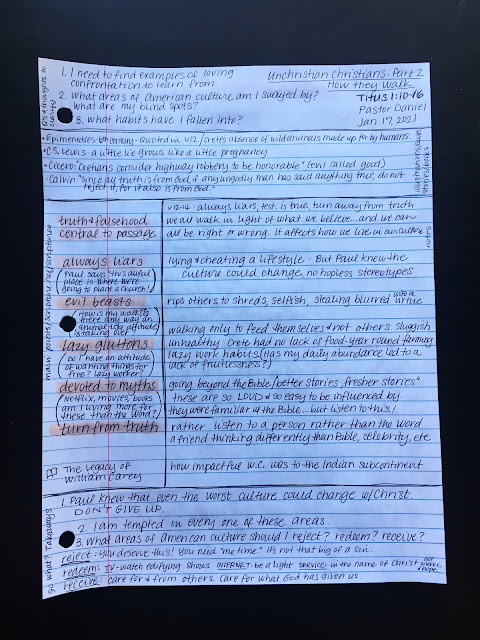 Unchristian Christians - Part 2
How they Walk
Titus 1:10-16
Pastor Daniel
Jan 17, 2021
1. I need to find examples of loving
confrontation to learn from.
2. What areas of American culture am I swayed by?
what are my blind spots?
3. what habits have I fallen into?
• Epimenides 6th century - Quoted in v12 / Crete's absence of wild animals made up for by humans.
• C.S. Lewis - a little lie grows like a little pregnancy
• Cicero: Cretians consider highway robbery to be honorable" (evil called good)
• Calvin "since all truth is from God, if any ungodly man has said anything true, do not
reject it, for it also is from God."
illustrations/quotes/
stories/books
main points/scripture ref/scriptures
notes
truth & falsehood
central to passage
v12-14 : always liars, test. is true, turn away from truth
we all walk in light of what we believe...and we can
all be right or wrong. It affects how we live in our culture
always liars
(Paul says "this awful
place is where we're
going to plant a church!)
lying & cheating a lifestyle - But Paul knew the
culture could change, no hopeless stereotypes
evil beasts
(How is my walk? Is
there any way an
animal like attitude
is taking over?)
rips others to shreds, selfish, stealing blurred with a
virtue
walking only to feed themselves & not others. Sluggish
lazy gluttons
(Do I have an attitude
of wanting things for
free? Lazy worker?)
unhealthy. Crete had no lack of food-year round farming
lazy work habits (Has my daily abundance led to a
lack of fruitlessness?)
devoted to myths
(Netflix, movies, books
am I living more for
these than the Word?)
going beyond the Bible/better stories, fresher stories"
these are so LOUD & so easy to be influenced by
they were familiar w/ the Bible...but listen to this!
turn from truth
rather listen to a person rather than the Word
a friend thinking differently than Bible, celebrity, etc
The legacy of
William Carey
how impactful W.C. was to the Indian subcontinent
So what? Takeaways
1. Paul knew that even the worst culture could change w/Christ.
DON'T GIVE UP.
2. I am tempted in every one of these areas.
3. What areas of American culture should I reject? redeem? receive?
reject: you deserve this! You need "me time." It's not that big of a sin.
redeem: TV-watch edifying shows INTERNET: be a light SERVICE: in the name of Christ not
receive: care for & from others. Care for what God has given us.